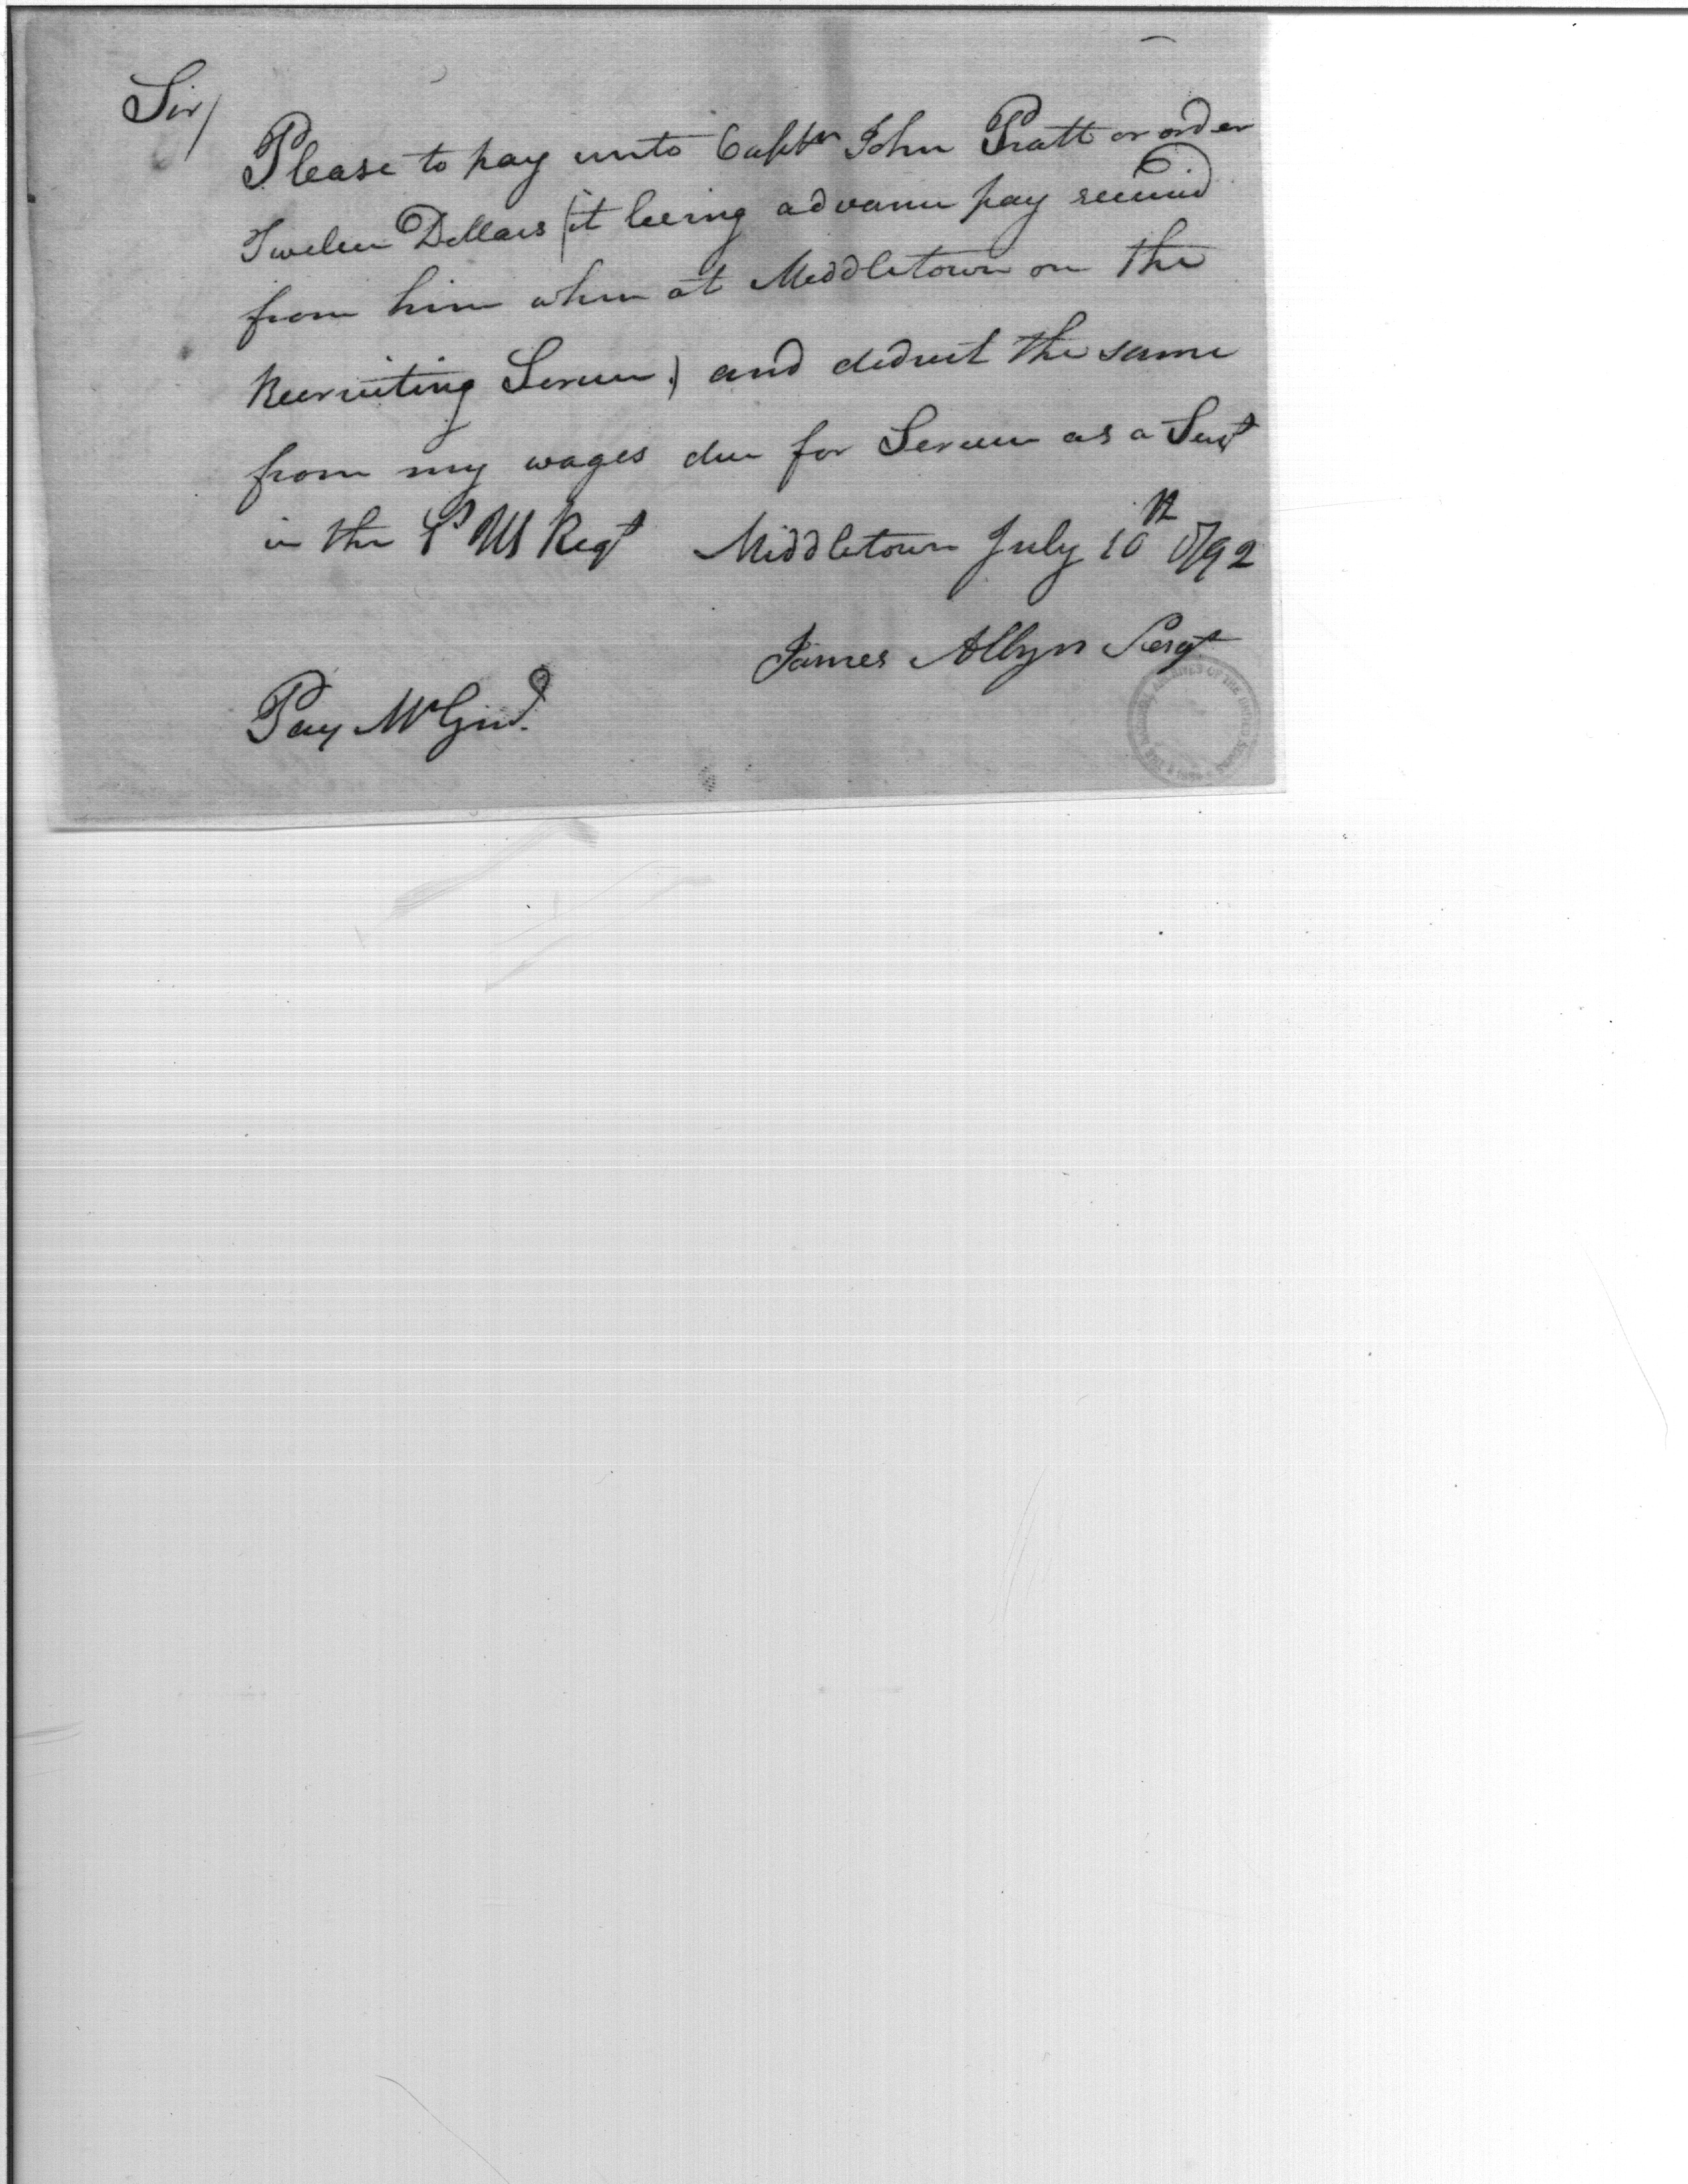 Sir/
Please to pay unto Captn John Pratt or order
Twelve Dollars (it being advance pay receivd
from him when at Middletown on the
Recruiting Service) and deduct the same
from my wages due for Service as a Sergt
in the US Regt Middletown July 10th 1792
James Allyn Sergt
Pay Mr Genl.
THE NATIONAL ARCHIVES OF THE UNITED STATES